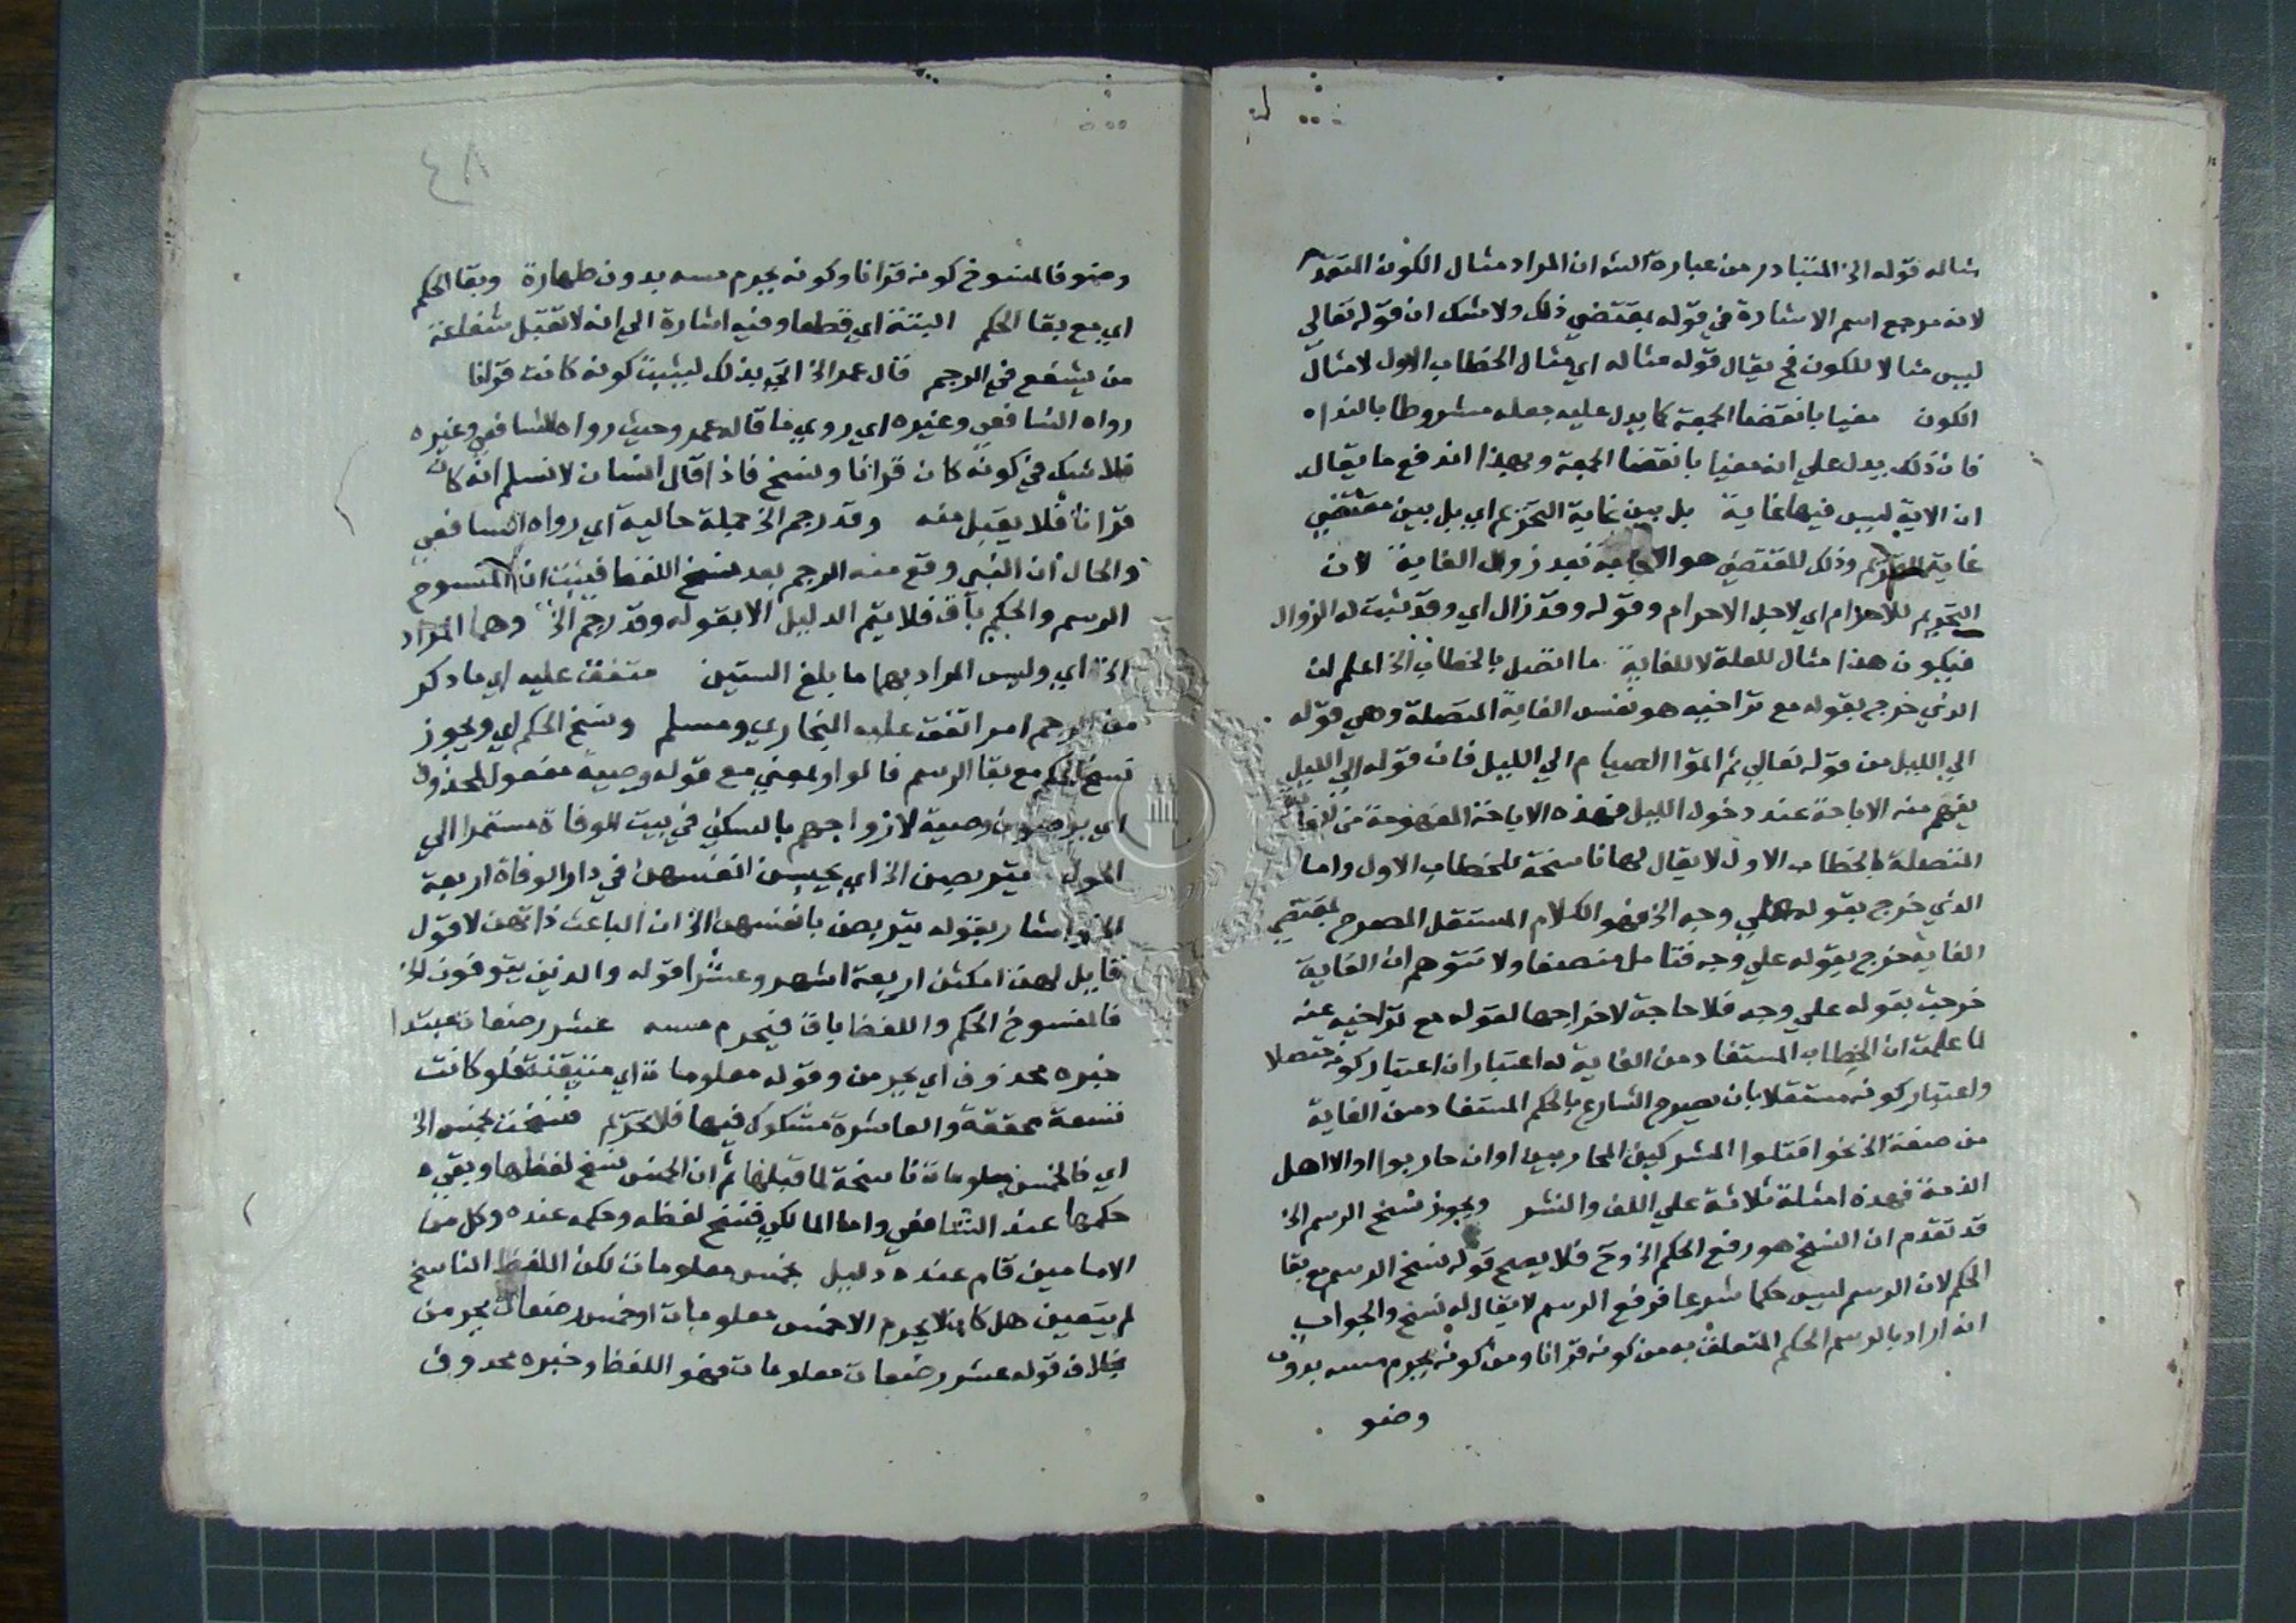 مثاله قوله الخ المتبادر من عبارة الشه ان المراد مثال الكون المتقدم
لانه مرجع اسم الاشارة في قوله بمقتضي ذلك ولا شك ان قوله تعالي
ليس مثالا للكون فح يقال قوله مثاله اي مثال الخطاب الاول لا مثال
الكون مغيا بانقضا الجمعة كما يدل عليه جعله مشروطا بالنداء
فان ذلك يدل علي انه مغيا بانقضا الجمعة وبهذا اندفع ما يقال
ان الاية ليس فيها غاية بل بين غاية التحريم اي بل بين مقتضي
غاية التحريم وذلك المقتضي هو الاباحة بعد زوال الغاية لان
التحريم للاحرام اي لاجل الاحرام وقوله وقد زال اي وقد ثبت له الزوال
فيكون هذا مثال للعلة لا للغاية ما اتصل بالخطاب الخ اعلم ان
الذي خرج بقوله مع تراخيه هو نفس الغاية المتصلة وهي قوله
الي الليل من قوله تعالي ثم اتموا الصيام الي الليل فان قوله الي الليل
يفهم منه الاباحة عند دخول الليل فهذه الاباحة المفهومة من الغاية
المتصلة بالخطاب الاول لا يقال لها ناسخة للخطاب الاول واما
الذي خرج بقوله علي وجه الخ فهو الكلام المستقل المصرح بمقتضي
الغاية فخرج بقوله علي وجه فتامل منصفا ولا تتوهم ان الغاية
خرجت بقوله علي وجه فلا حاجة لاخراجها لقوله مع تراخيه عنه
لما علمت ان الخطاب المستفاد من الغاية له اعتباران اعتبار كونه متصلا
واعتبار كونه مستقلا بان يصرح الشارع بالحكم المستفاد من الغاية
من صفة الخ نحو اقتلوا المشركين المحاربين او ان حاربوا او الا اهل
الذمة فهذه امثلة ثلاثة علي اللف والنشر ويجوز نسخ الرسم الخ
قد تقدم ان النسخ هو رفع الحكم الخ وح فلا يصح قوله نسخ الرسم مع بقا
الحكم لان الرسم ليس حكما شرعا فرفع الرسم لا يقال له نسخ والجواب
انه اراد بالرسم الحكم المتعلق به من كونه قرانا ومن كونه يحرم مسه بدون
وضو
٤٨
وضو فالمنسوخ كونه قرانا وكونه يحرم مسه بدون طهارة وبقا الحكم
اي مع بقا الحكم البتة اي قطعا وفيه اشارة الي انه لا تقبل شفاعة
من يشفع في الرجم قال عمر الخ اتي بذلك ليثبت كونه كانت قرانا
رواه الشافعي وغيره اي روي ما قاله عمر وحيث رواه الشافعي وغيره
فلا شك في كونه كان قرانا ونسخ فاذا قال انسان لا نسلم انه كان
قرانا فلا يقبل منه وقد رجم الخ جملة حالية اي رواه الشافعي
والحال ان النبي وقع منه الرجم بعد نسخ اللفظ فيثبت ان المنسوخ
الرسم والحكم باق فلا يتم الدليل الا بقوله وقد رجم الخ وهما المراد
الخ اي وليس المراد بهما ما بلغ الستين متفق عليه اي ما ذكر
من الرجم امر اتفق عليه البخاري ومسلم ونسخ الحكم اي ويجوز
نسخ الحكم مع بقا الرسم فالواو بمعني مع قوله وصية مفعول لمحذوف
اي يوصون وصية لازواجهم بالسكني في بيت الوفاة مستمرا الي
الحول يتربصن الخ اي يحبسن انفسهن في دار الوفاة اربعة
الخ واشار بقوله يتربصن بانفسهن الخ ان الباعث ذاتهن لا قول
قايل لهن امكثن اربعة اشهر وعشرا قوله والذين يتوفون الخ
فالمنسوخ الحكم واللفظ باق فيحرم مسه عشر رضعات مبتدا
خبره محذوف اي يحرمن وقوله معلومات اي متيقنة فلو كانت
تسعة محققة والعاشرة مشكوك فيها فلا تحريم فنسخت بخمس الخ
اي فالخمس معلومات ناسخة لما قبلها ثم ان الخمس نسخ لفظها وبقي
حكمها عند الشافعي واما المالكي فنسخ لفظه وحكمه عنده وكل من
الامامين قام عنده دليل بخمس معلومات لكن اللفظ الناسخ
لم يتعين هل كان لا يحرم الا خمس معلومات او خمس رضعات يحرمن
بخلاف قوله عشر رضعات معلومات فهو اللفظ وخبره محذوف